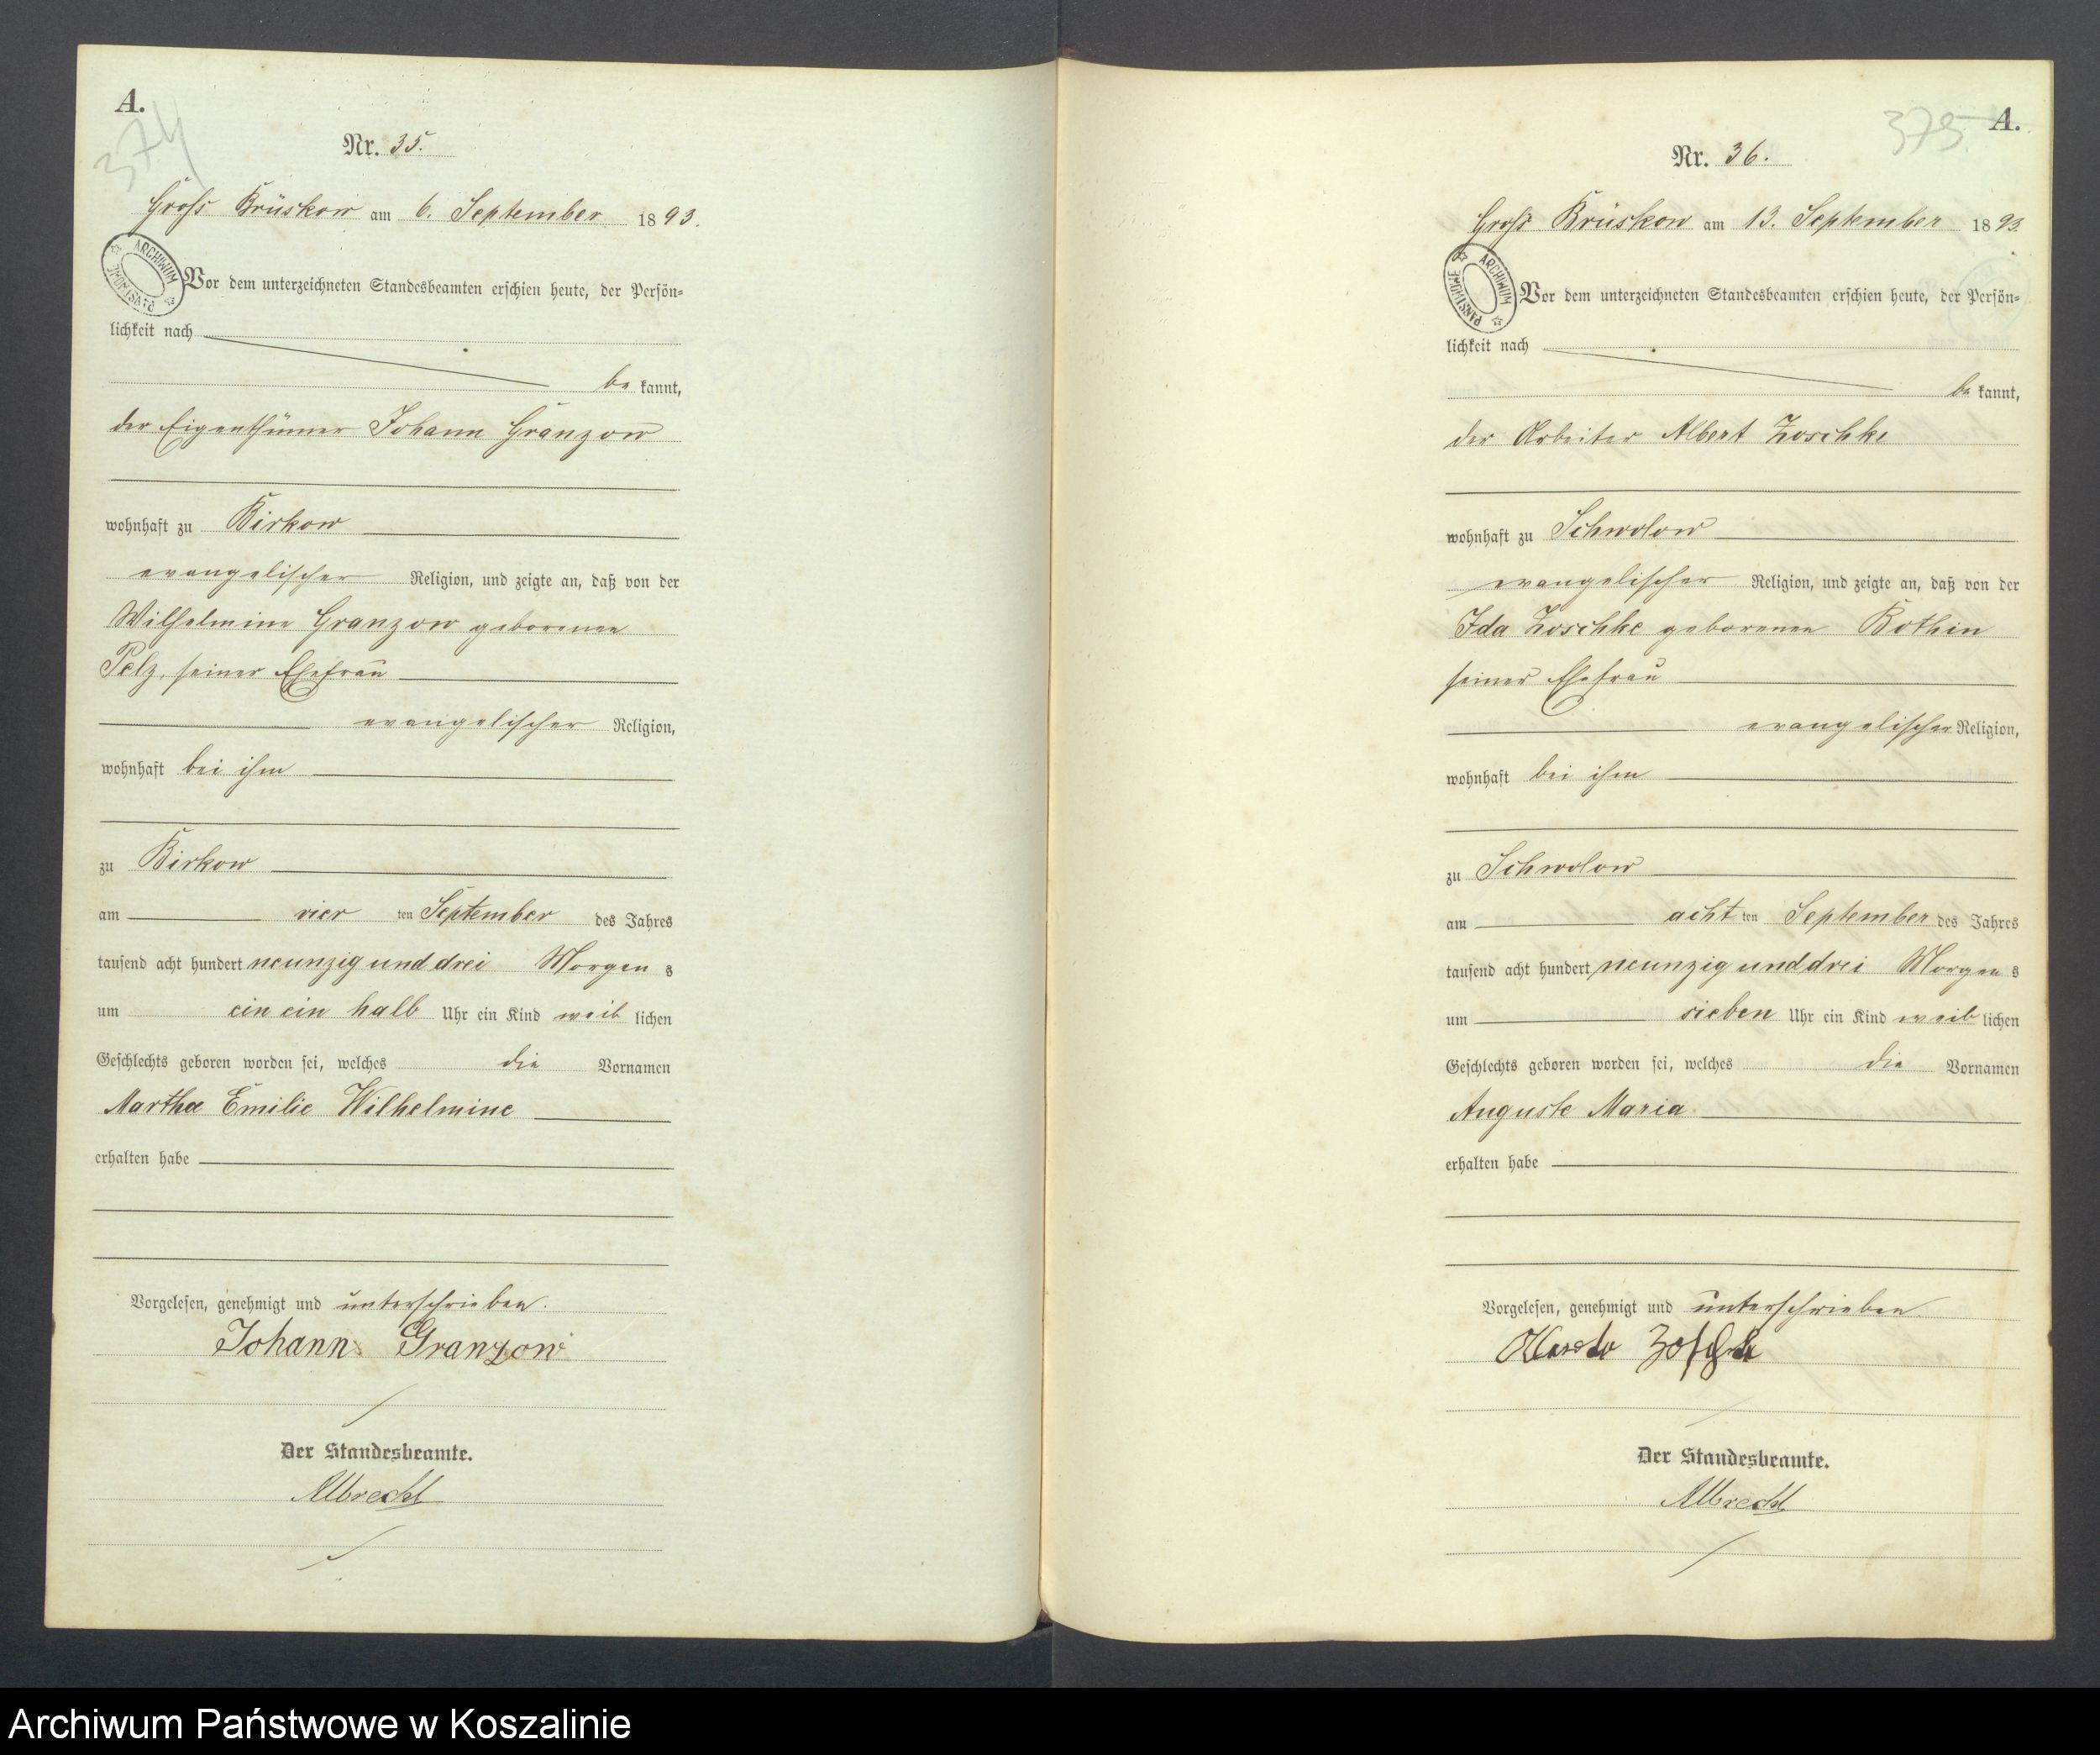 A.
374
Nr. 35.
Groß Brüskow am 6. September 1893.
ARCHIWUM PAŃSTWOWE
Vor dem unterzeichneten Standesbeamten erschien heute, der Persön=
lichkeit nach
be kannt,
der Eigenthümer Johann Granzow
wohnhaft zu Birkow
evangelischer Religion, und zeigte an, daß von der
Wilhelmine Granzow geborenen
Pelz, seiner Ehefrau
evangelischer Religion,
wohnhaft bei ihm
zu Birkow
am vier ten September des Jahres
tausend acht hundert neunzig und drei Morgen s
um ein ein halb Uhr ein Kind weib lichen
Geschlechts geboren worden sei, welches die Vornamen
Martha Emilie Wilhelmine
erhalten habe
Vorgelesen, genehmigt und unterschrieben.
Johann Granzow
Der Standesbeamte.
Albrecht
A.
375
Nr. 36.
Groß Brüskow am 13. September 1893.
ARCHIWUM PAŃSTWOWE
Vor dem unterzeichneten Standesbeamten erschien heute, der Persön=
lichkeit nach
be kannt,
der Arbeiter Albert Zoschke
wohnhaft zu Schwolow
evangelischer Religion, und zeigte an, daß von der
Ida Zoschke geborenen Bothin
seiner Ehefrau
evangelischer Religion,
wohnhaft bei ihm
zu Schwolow
am acht ten September des Jahres
tausend acht hundert neunzig und drei Morgen s
um sieben Uhr ein Kind weib lichen
Geschlechts geboren worden sei, welches die Vornamen
Auguste Maria
erhalten habe
Vorgelesen, genehmigt und unterschrieben
Der Standesbeamte.
Albrecht
Archiwum Państwowe w Koszalinie